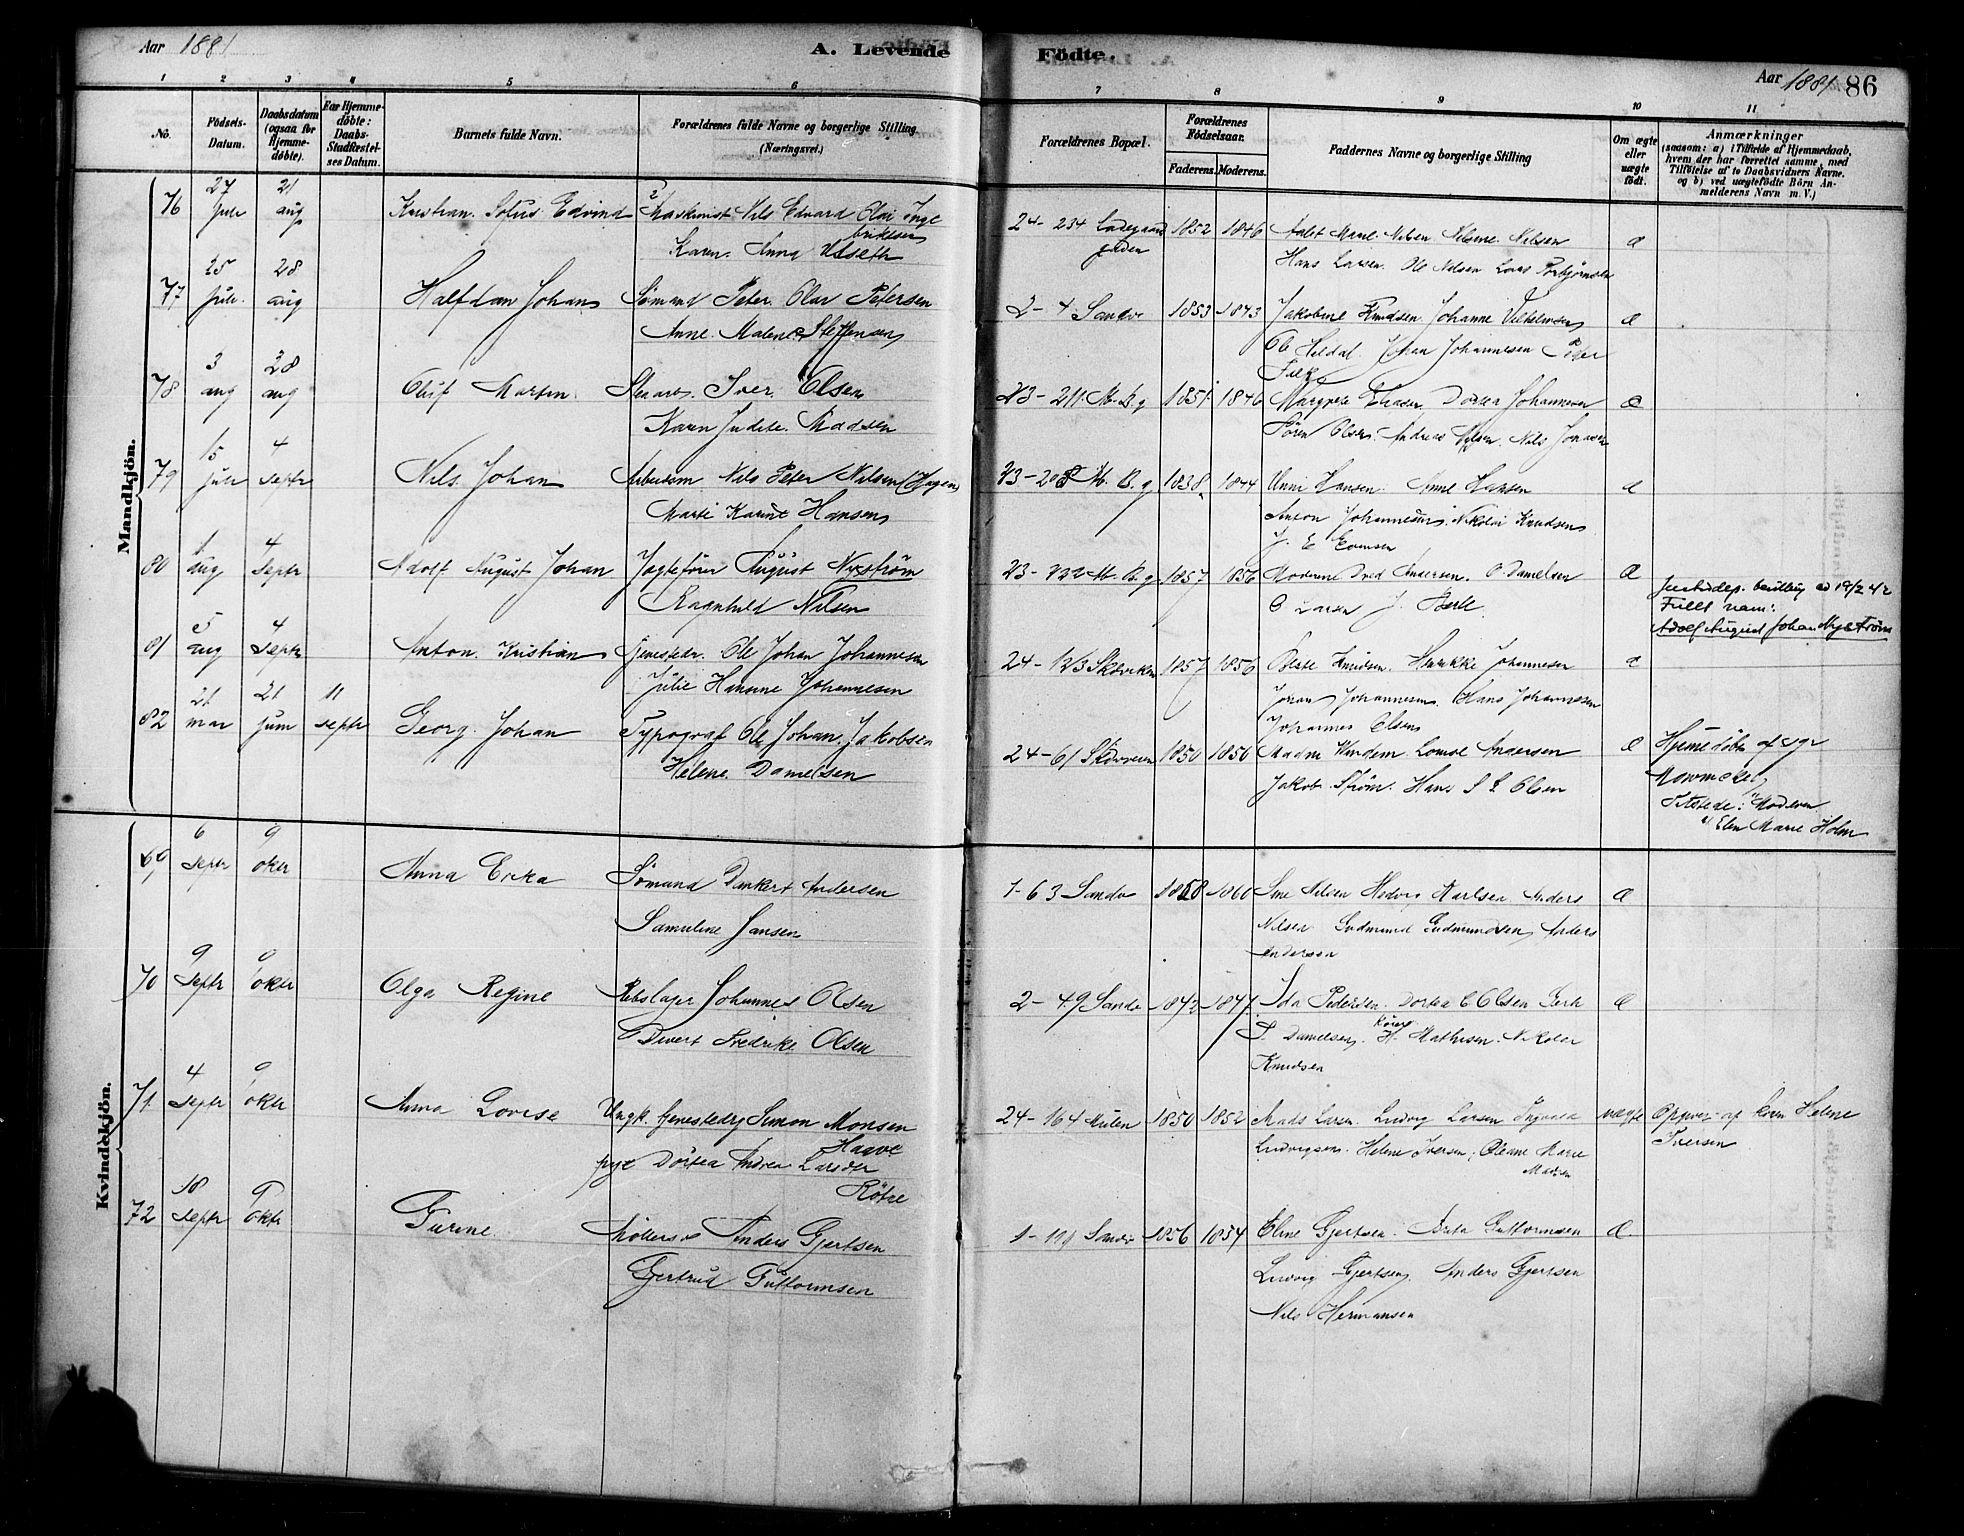 Aar 1881
A. Levende
Födte.
Aar 1881
86
1 2 3 4 5 6 7 8 9 10 11
No.
Födsels-Datum.
Daabsdatum (ogsaa for Hjemme-döbte).
Før Hjemme-döbte: Daabs-Stadfæstel-ses Datum.
Barnets fulde Navn.
Forældrenes fulde Navne og borgerlige Stilling
(Næringsvei.)
Forældrenes Bopæl.
Forældrenes Födselsaar.
Faderens. Moderens.
Faddernes Navne og borgerlige Stilling
Om ægte eller uægte født.
Anmærkninger
(saasom: a) i Tilfælde af Hjemmedaab,
hvem der har forrettet samme, med
Tilföielse af to Daabsvidners Navne.
og b) ved uægtefödte Börn An-
melderens Navn m. V.)
Mandkjön.
76 27 Juli 21 aug Kristian Sofus Edvind Maskinist Nils Edvard Olai Inge
briktsen
Karen Anna
24-234 Ladegaards
gaden
1852 1846 Marie Nilsen Nilsine Nilsen
Hans Larsen Ole Nilsen Lars Torbjørnsen
77 25 Juli 28 aug Halfdan Johan Sømand Peter Olai Petersen
Anne Malene Steffensen
2-4 Sandv 1853 1843 Jakobine Knudsen Johanne Vilhelmsen
Ole Heldal Johan Johannesen Peter
Falk
78 3 aug 28 aug Oluf Martin Iver Olsen
Karen Judite Madsen
23-211 M. B. g 1851 1846 Margrete Dortea Johannesen
Sören Olsen Andreas Nilsen Nils Johnsen
79 15 Juli 4 Septr Nils Johan Arbeidsm Nils Peter Nilsen (Hagen)
Marte Karine Hansen
23-208 M. B. g 1838 1844 Unni Hansen Anne Hansen
Anton Johannesen Nikolai Knudsen
J. E Evensen
80 1 aug 4 Septr Adolf August Johan Jagtefører August Nyström
Ragnhild Nilsen
23-232 M. B. g 1857 1856 Moderne Andersen O Danielsen
O Larsen J.
19/2 42
Fullt navn:
Adolf August Johan Nyström
81 5 aug 4 Septr Anton Kristian Tjenestedr. Ole Johan Johannesen
Julie Hansine Johannesen
24-123 Skivviken 1857 1856 Knudsen Henrikke Johannesen
Johan Johannesen Hans Johannessen
Johannes Olsen
82 21 mar 21 juni 11 septr Georg Johan Typograf Ole Johan Jakobsen
Helene Danielsen
24-61 1850 1856 Madm Lovise Andersen
Jakob Strøm Hans S L Olsen
Hjemmedøbt af
Tilstede: Moderen
Elen Marie Holm
Kvindekjön.
69 6 Septr 9 oktr Anna Erika Sømand Dankert Andersen
Samuline Jansen
1-63 Sandv 1858 1860 Sine Nilsen Hedvig Karlsen Anders
Nilsen Gudmund Gudmundsen Anders
Andersen
70 9 Septr 9 oktr Olga Regine Rebslager Johannes Olsen
Divert Fredrike Olsen
2-49 Sandv 1842 1847 Ida Pedersen Dortea C Olsen
S. Danielsen H. Mathisen Nikolai
Knudsen
71 4 Septr 9 oktr Anna Lovise Ungk. tjenestedr Simon Monsen
Haave
pige Dortea Andrea Larsdr
Rötze
24-164 Mulen 1850 1852 Mads Larsen Ludvig Larsen Ingvara
Ludvigsen Helene Iversen, Oleane Marie
Madsen
uægte Opgivet af kvin Helene
Iversen
72 18 Septr 9 oktr Gurine Møllersv Anders Gjertsen
Gjertrud Guttormsen
1-109 Sandv 1856 1854 Eline Gjertsen Berta Guttormsen
Ludvig Gjertsen Anders Gjertsen
Nils Hermansen